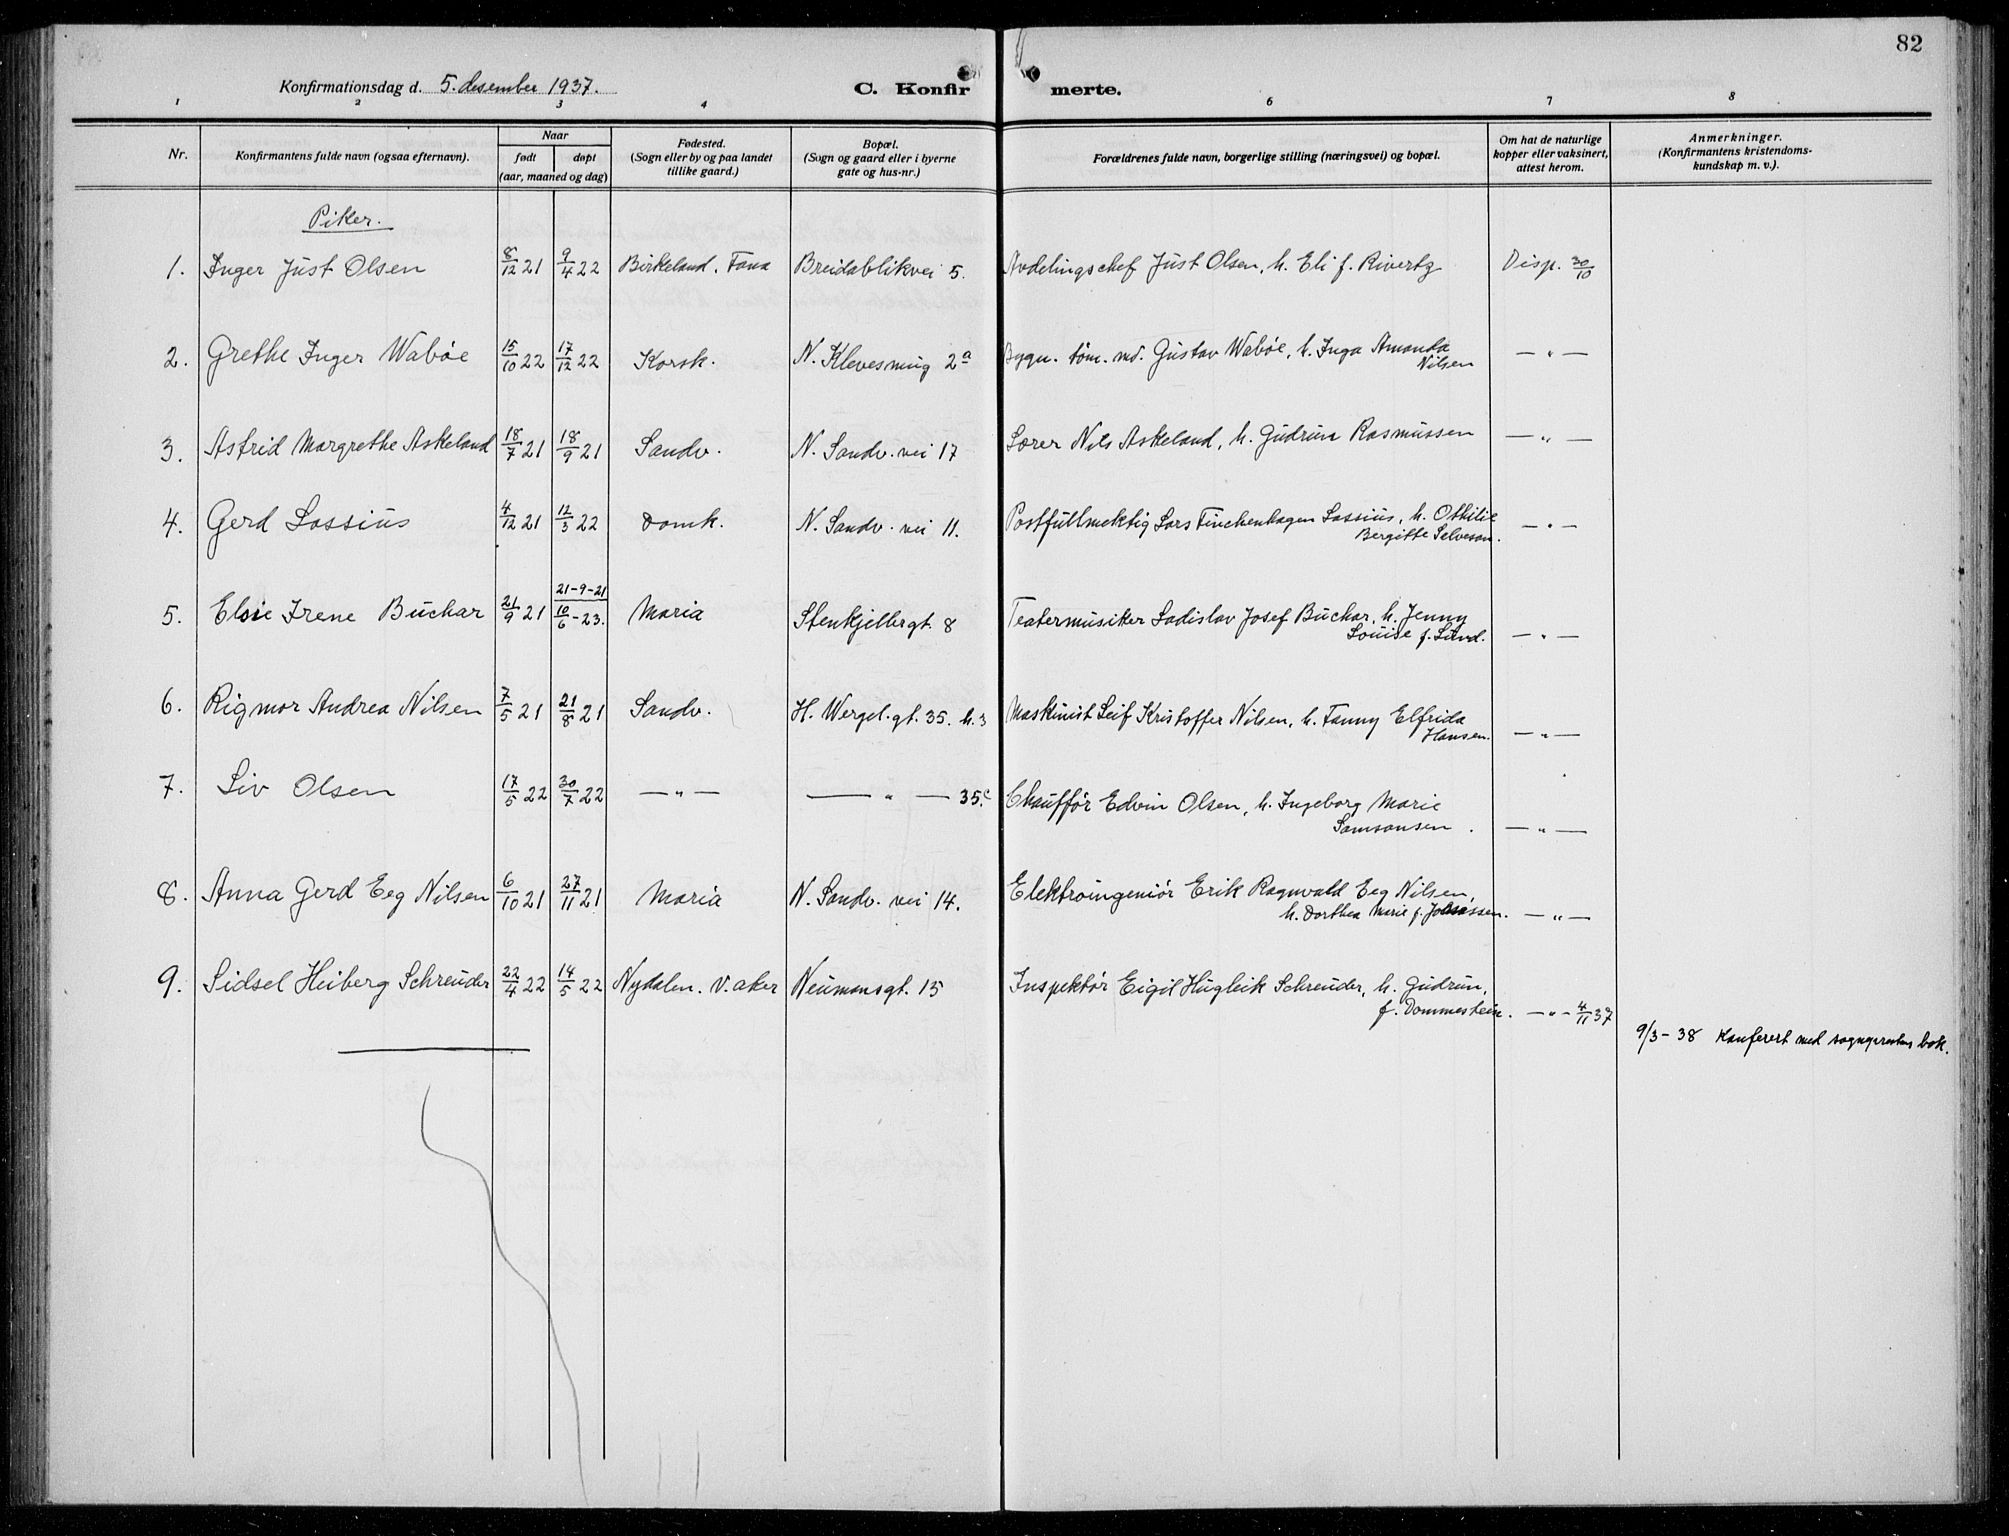 82
Konfirmationsdag d. 5. desember 1937.
C. Konfir merte.
1 2 3 4 6 7 8
Nr.
Konfirmantens fulde navn (ogsaa efternavn).
Naar
født døpt
(aar, maaned og dag)
Fødested.
(Sogn eller by og paa landet
tillike gaard.)
Bopæl.
(Sogn og gaard eller i byerne
gate og hus-nr.)
Forældrenes fulde navn, borgerlige stilling (næringsvei) og bopæl.
Om hat de naturlige
kopper eller vaksinert,
attest herom.
Anmerkninger.
(Konfirmantens kristendoms-
kundskap m. v.).
Piker.
1. Inger Just Olsen 8/12 21 9/4 22 Birkeland. Fana Breidablikvei 5. Avdelingschef Just Olsen, h. Eli f. Rivertz Disp. 30/10
2. Grethe Inger Wabøe 15/10 22 17/12 22 Korsk. N. Klevesmug 2a Bygn. tøm. md. Gustav Wabøe, h. Inga Amanda
Nilsen — " —
3. Astrid Margrethe Askeland 18/7 21 18/9 21 Sandv. N. Sandv. vei 17 Lærer Nils Askeland, h. Gudrun Rasmussen — " —
4. Gerd Lassius 4/12 21 12/3 22 Domk. N. Sandv. vei 11. Postfullmektig Lars Finckenhagen Lassius, h. Othilie
Bergitte Selvesan. — " —
21-9-21
5. Elsie Irene Buchar 21/9 21 10/6 - 23. Maria Stenkjellergt. 8 Teatermusiker Ladislav Josef Buchar, h. Jenny
Louise f. Lund. — " —
6. Rigmor Andrea Nilsen 7/5 21 21/8 21 Sandv. H. Wergel. gt. 35. h. 3 Maskinist Leif Kristoffer Nilsen, h. Fanny Elfrida
Hansen. — " —
7. Liv Olsen 17/5 22 30/7 22 — " — — " — 35.c Chauffør Edvin Olsen, h. Ingeborg Marie
Samsonsen. — " —
8. Anna Gerd Eeg Nilsen 6/10 21 27/11 21 Maria N. Sandv. vei 14. Elektroingeniør Erik Ragnvald Eeg Nilsen,
h. Dorthea Marie f. — " —
9. Sidsel Heiberg Schreuder 22/4 22 14/5 22 Nydalen. V. aker Neumansgt. 15 Inspektør Eigil Hugleik Schreuder, h. Gudrun,
f. Dommestein. — " — 4/11 37
9/3 - 38 Konferert med sogneprestens bok.